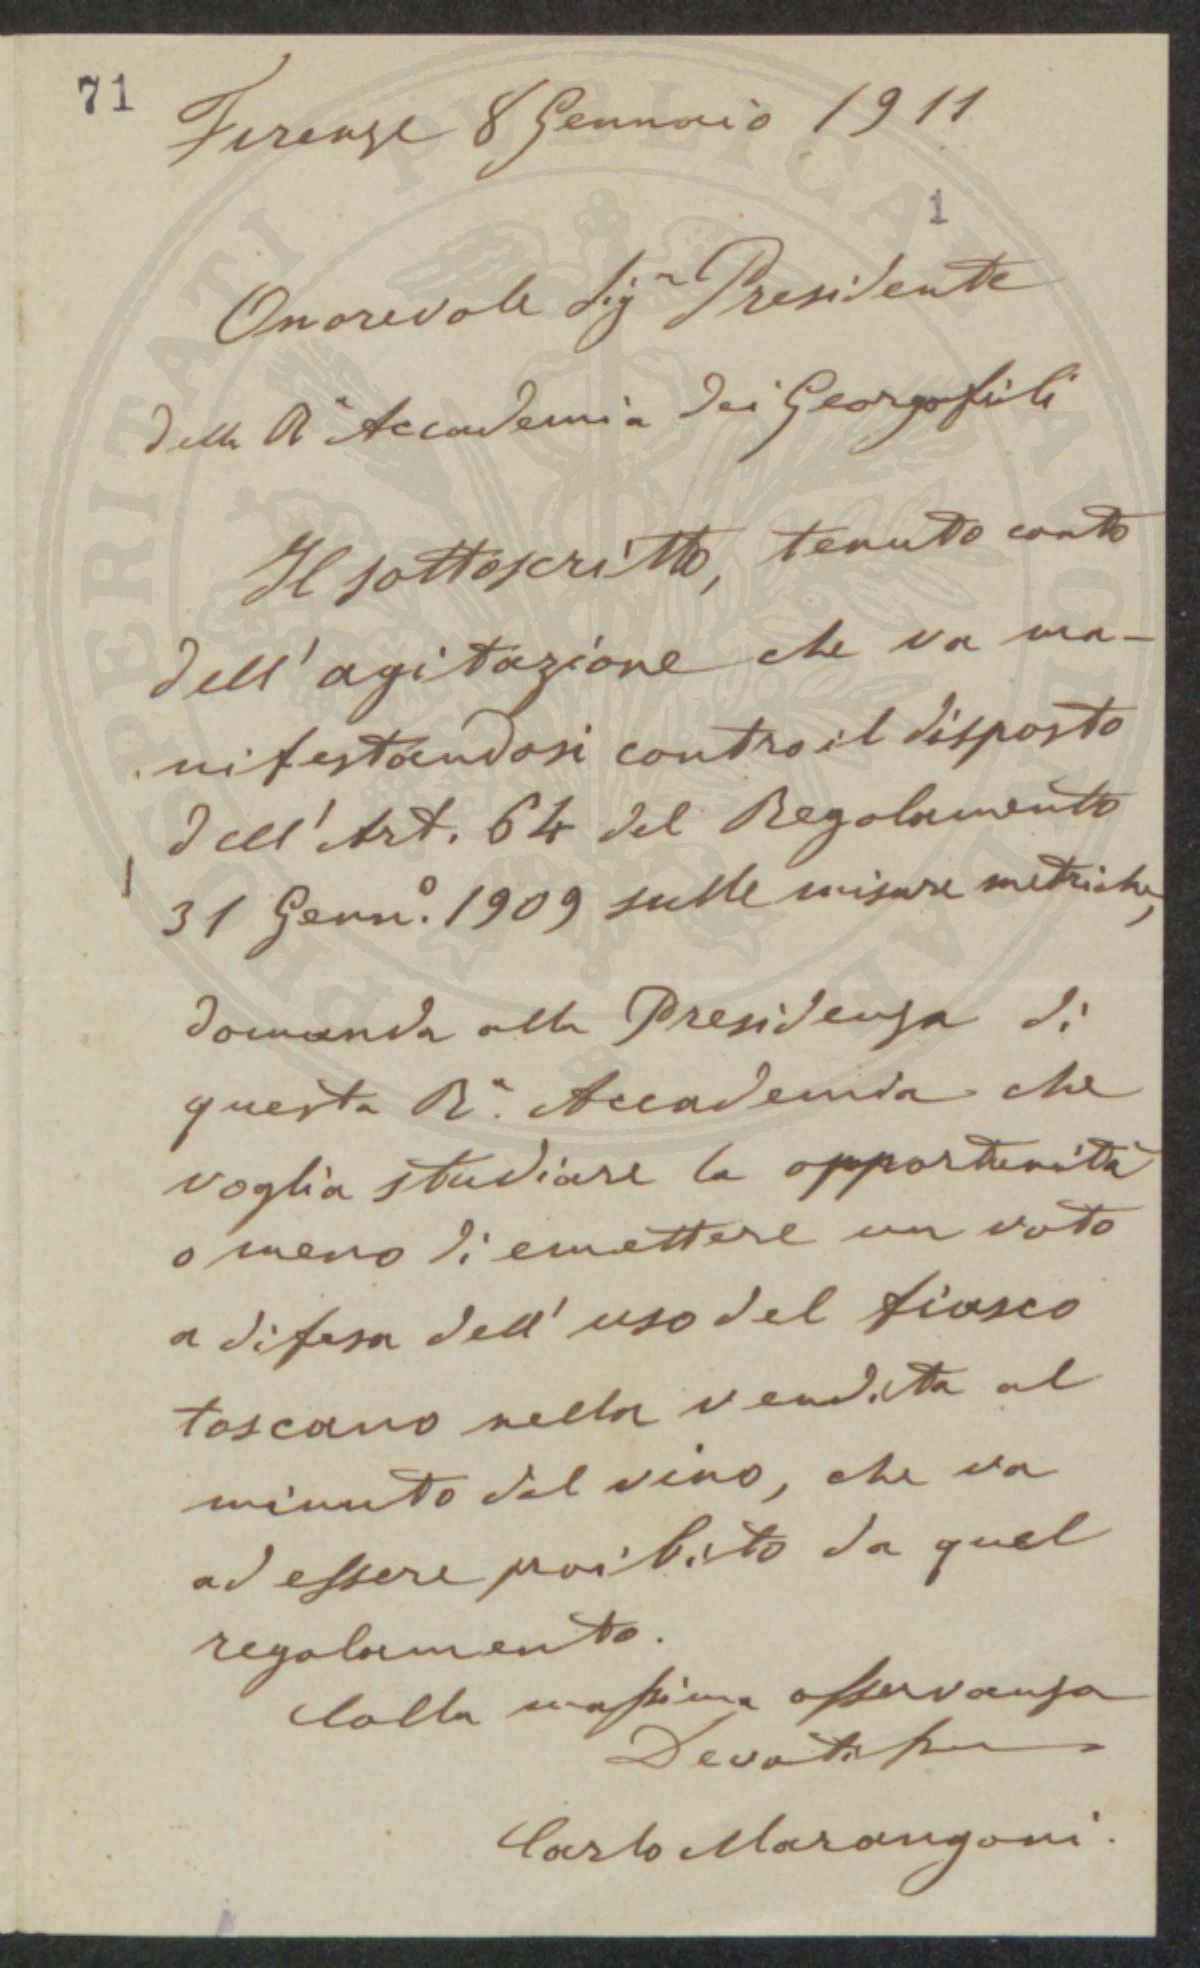 71
Firenze 8 Gennaio 1911
1
Onorevole Sigʳ Presidente
della Rª Accademia dei Georgofili
Il sottoscritto, tenuto conto
dell'agitazione che va ma-
nifestandosi contro il disposto
dell'Art. 64 del Regolamento
31 Gennº. 1909 sulle misure metriche,
domanda alla Presidenza di
questa Rª. Accademia che
voglia studiare la opportunità
o meno di emettere un voto
a difesa dell'uso del fiasco
toscano nella vendita al
minuto del vino, che va
ad essere proibito da quel
regolamento.
Colla massima osservanza
Devotissmo
Carlo Marangoni.
PROSPERITATI PUBLICAE AUGENDAE